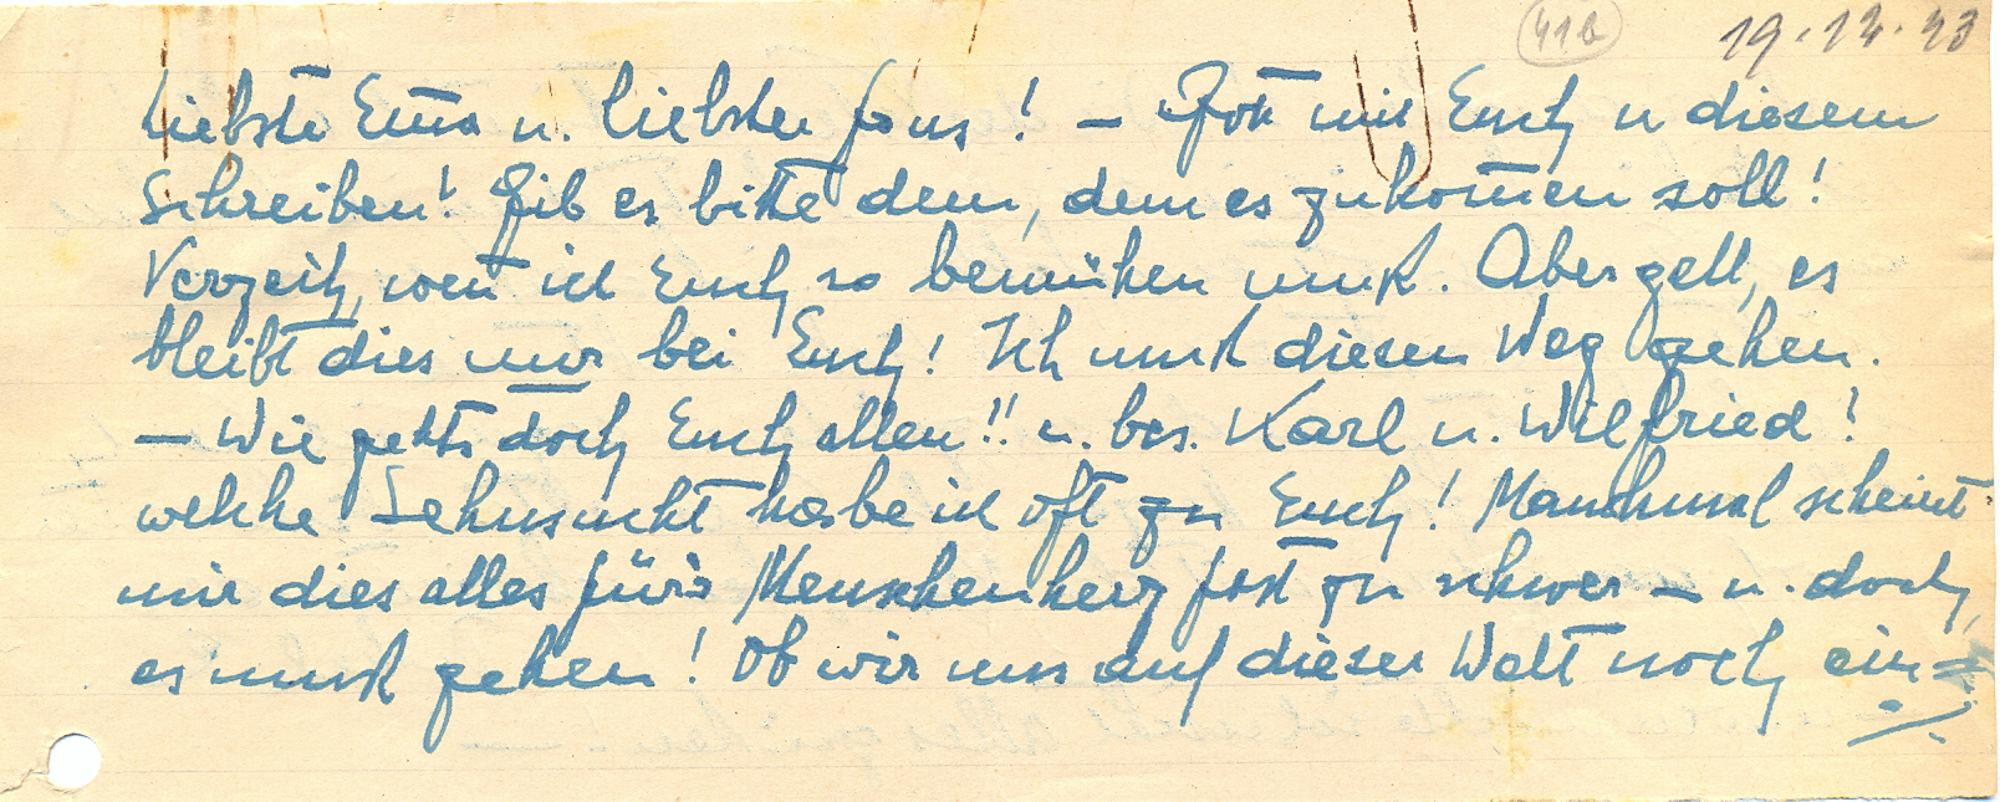 41b 19.12.43
Liebste Em̄a u. liebster Hans! – Gott mit Euch u diesem
Schreiben! Gib es bitte dem, dem es zukom̄en soll!
Verzeih, wen̄ ich Euch so bemühen muß. Aber gell, es
bleibt dies nur bei Euch! Ich muß diesen Weg gehen.
– Wie gehts doch Euch allen!! u. bes. Karl u. Wilfried!
welche Sehnsucht habe ich oft zu Euch! Manchmal scheint
mir dies alles für's Menschenherz fast zu schwer – u. doch,
es muß gehen! Ob wir uns auf dieser Welt noch ein=